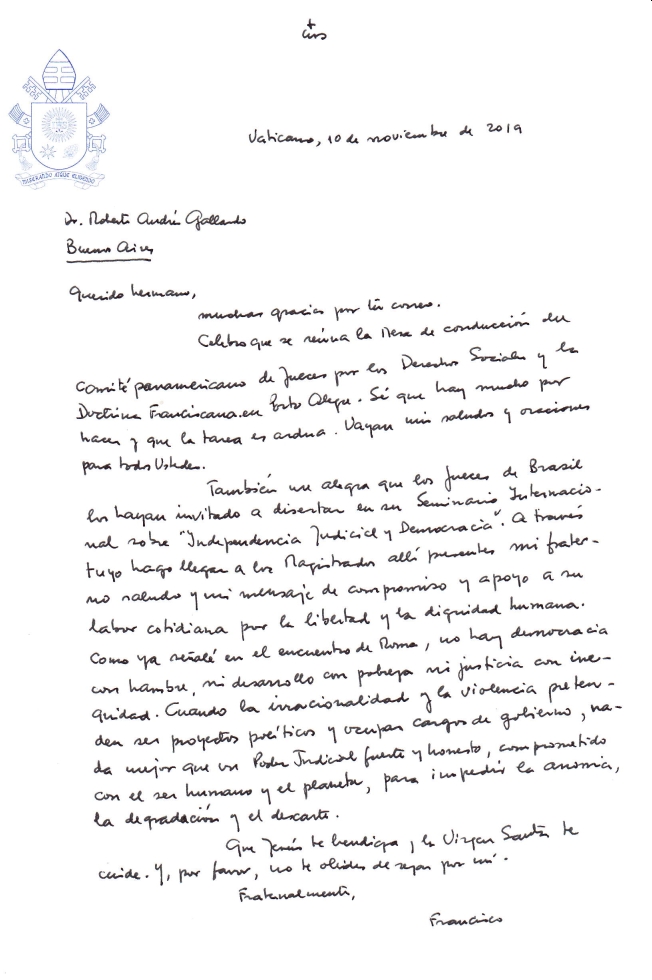 MISERANDO ATQUE ELIGENDO
Vaticano, 10 de noviembre de 2019
Dr. Roberto Andrés Gallardo
Buenos Aires
Querido hermano,
muchas gracias por tu correo.
Celebro que se reúna la Mesa de conducción del
Comité panamericano de Jueces por los Derechos Sociales y la
Doctrina Franciscana en Porto Alegre. Sé que hay mucho por
hacer y que la tarea es ardua. Vayan mis saludos y oraciones
para todos Ustedes.
También me alegra que los Jueces de Brasil
los hayan invitado a disertar en su Seminario Internacio-
nal sobre "Independencia Judicial y Democracia". A través
tuyo hago llegar a los Magistrados allí presentes mi frater-
no saludo y mi mensaje de compromiso y apoyo a su
labor cotidiana por la libertad y la dignidad humana.
Como ya señalé en el encuentro de Roma, no hay democracia
con hambre, ni desarrollo con pobreza ni justicia con ine-
quidad. Cuando la irracionalidad y la violencia preten-
den ser proyectos políticos y ocupan cargos de gobierno, na-
da mejor que un Poder Judicial fuerte y honesto, comprometido
con el ser humano y el planeta, para impedir la anomia,
la degradación y el descarte.
Que Jesús te bendiga, la Virgen Santa te
cuide. Y, por favor, no te olvides de rezar por mí.
Fraternalmente,
Francisco